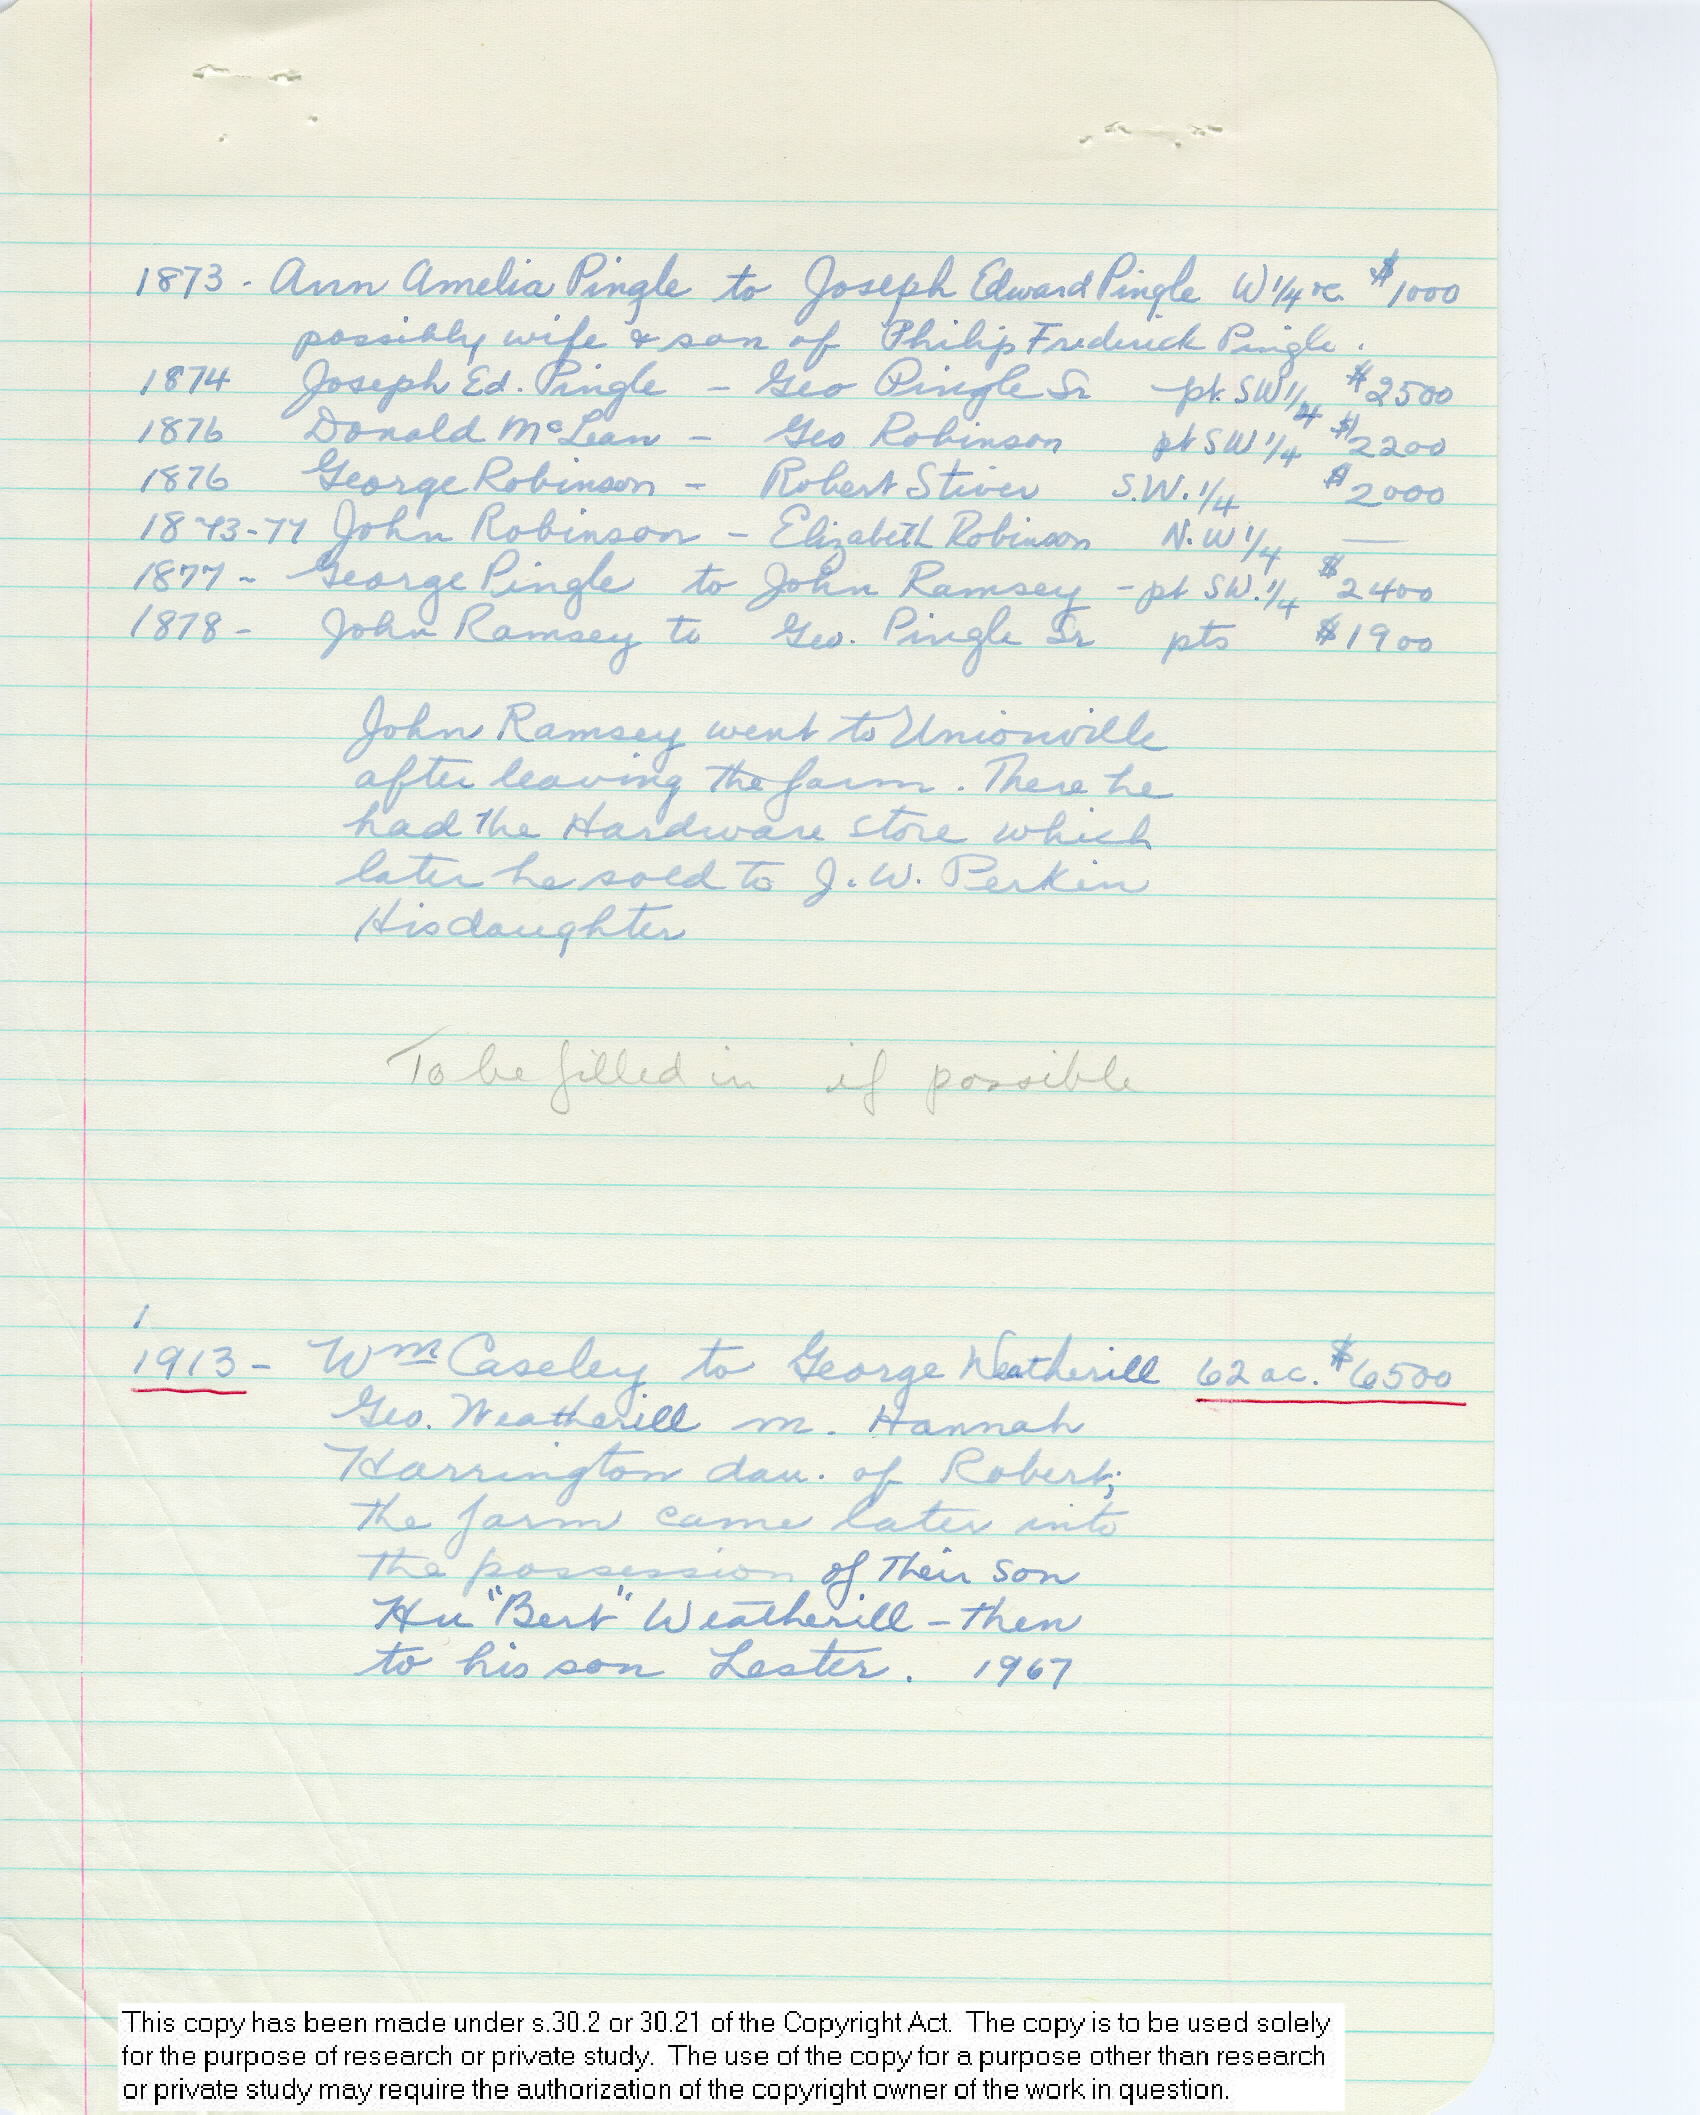 1873 - Ann Amelia Pingle to Joseph Edward Pingle W 1/4 rc. $1000
possibly wife & son of Philip Frederick Pingle.
1874 Joseph Ed. Pingle - Geo Pingle Sr - pt. SW 1/4 $2500
1876 Donald McLean - Geo Robinson pt SW 1/4 $2200
1876 George Robinson - Robert Stiver S.W. 1/4 $2000
1873-77 John Robinson - Elizabeth Robinson N.W 1/4 —
1877 - George Pingle to John Ramsey - pt SW. 1/4 $2400
1878 - John Ramsey to Geo. Pingle Sr pts $1900
John Ramsey went to Unionville
after leaving the farm. There he
had the Hardware store which
later he sold to J. W. Perkin
His daughter
To be filled in if possible
1
1913 - Wm Caseley to George Weatherill 62 ac. $6500
Geo. Weatherill m. Hannah
Harrington dau. of Robert;
the farm came later into
the possession of Their son
Hu "Bert" Weatherill - then
to his son Lester. 1967
This copy has been made under s.30.2 or 30.21 of the Copyright Act. The copy is to be used solely
for the purpose of research or private study. The use of the copy for a purpose other than research
or private study may require the authorization of the copyright owner of the work in question.